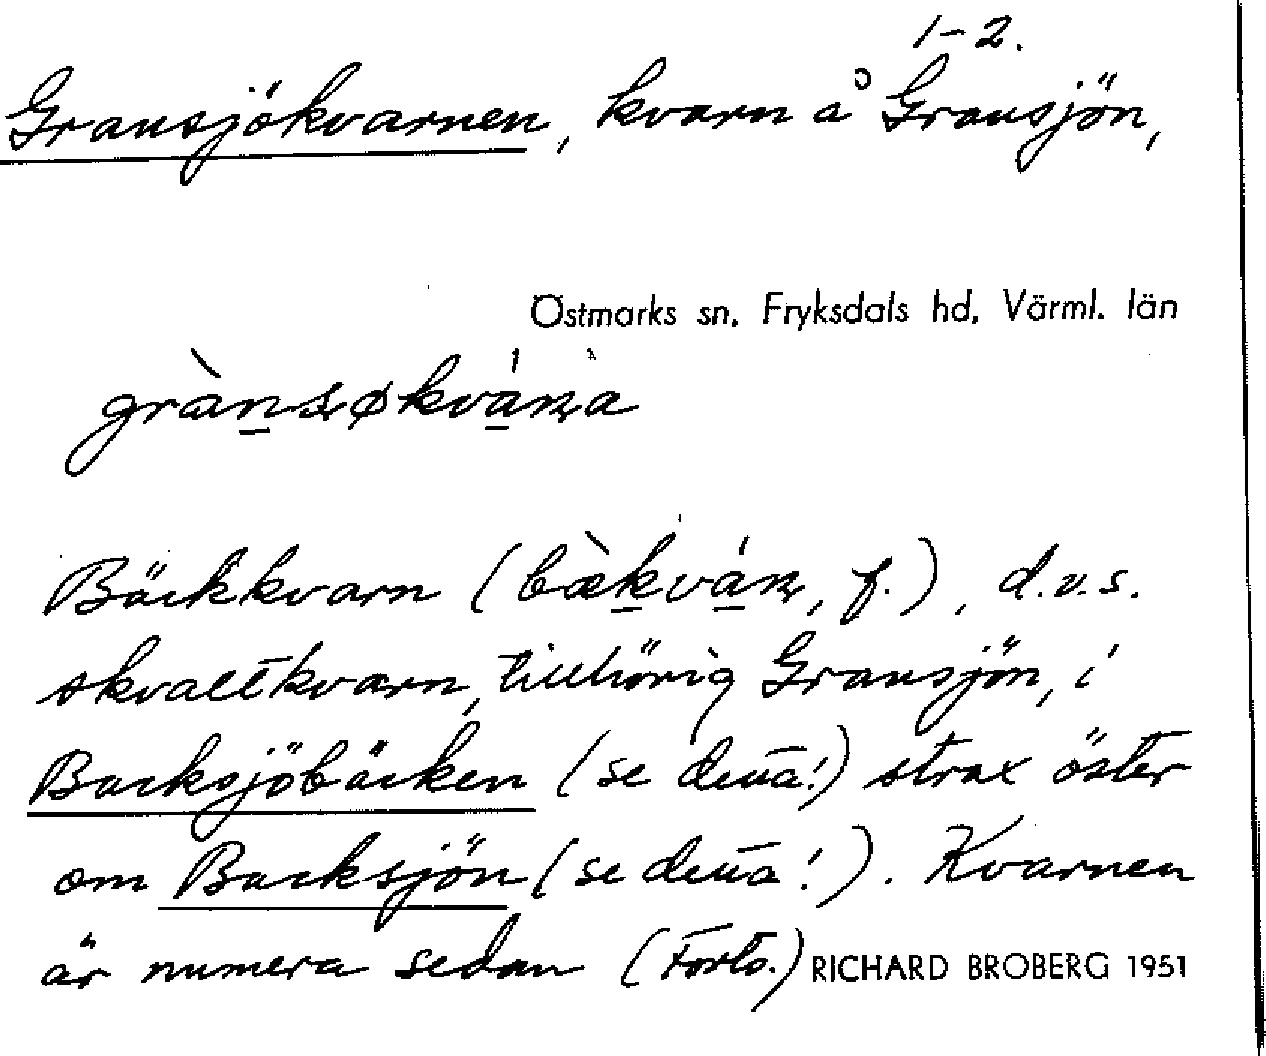 1-2.
Gransjökvarnen, kvarn å Gransjön,
Östmarks sn, Fryksdals hd, Värml. län
Bäckkvarn (, f.), d.v.s.
skvaltkvarn, tillhörig Gransjön, i
Backsjöbäcken (se detta!) strax öster
om Backsjön (se detta!). Kvarnen
är numera sedan (Forts.) RICHARD BROBERG 1951